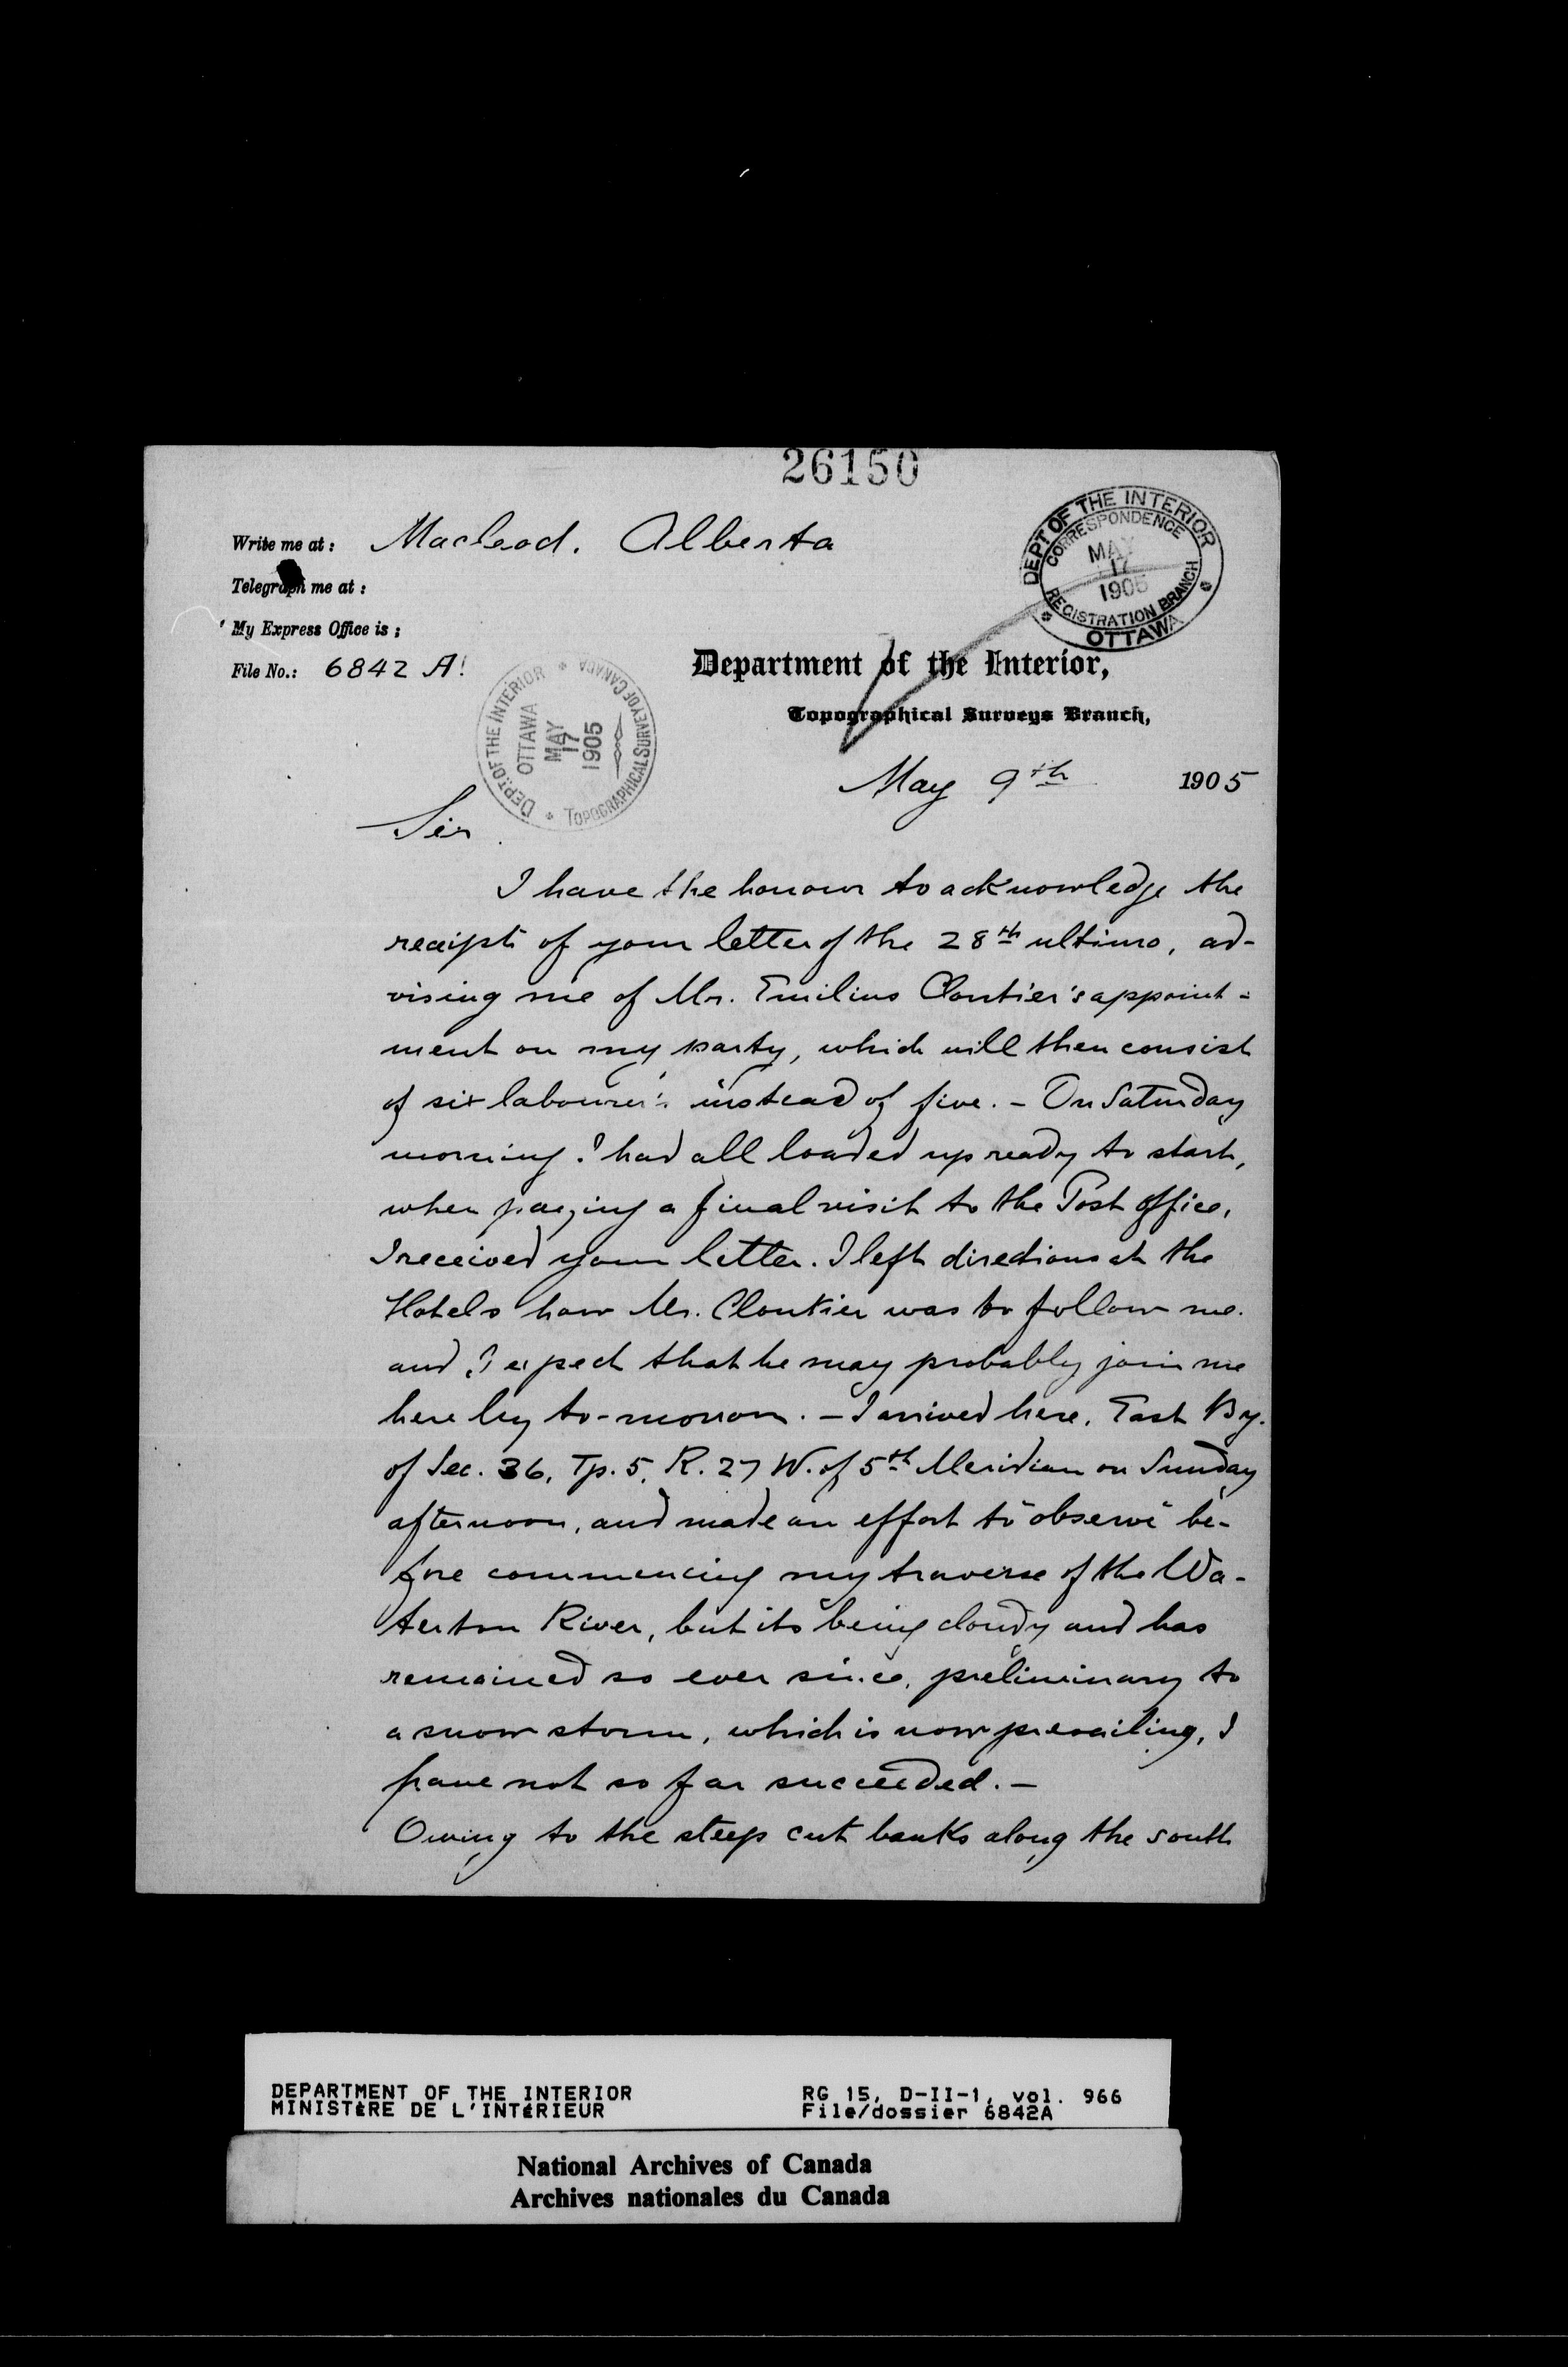 26150
Write me at : Macleod. Alberta
Telegraph me at :
My Express Office is ;
File No.: 6842 A!
DEPT OF THE INTERIOR
CORRESPONDENCE
MAY
17
1905
REGISTRATION BRANCH
OTTAWA
DEPT. OF THE INTERIOR
OTTAWA
MAY
17
1905
TOPOGRAPHICAL SURVEY OF CANADA
Department of the Interior,
Topographical Surveys Branch,
May 9th 1905
Sir
I have the honour to acknowledge the
receipt of your letter of the 28th ultimo, ad-
vising me of Mr. Emilius Cloutier's appoint-
ment on my party, which will then consist
of six labourers instead of five. - On Saturday
morning I had all loaded up ready to start,
when paying a final visit to the Post office,
I received your letter. I left directions at the
Hotels how Mr. Cloutier was to follow me.
and I expect that he may probably join me
here by to-morrow. - I arrived here, East By.
of Sec. 36, Tp. 5, R. 27 W. of 5th Meridian on Sunday
afternoon, and made an effort to "observe" be-
fore commencing my traverse of the Wa-
terton River, but its being cloudy and has
remained so ever since, preliminary to
a snow storm, which is now prevailing, I
have not so far succeeded. -
Owing to the steep cut banks along the south
DEPARTMENT OF THE INTERIOR
MINISTÈRE DE L'INTÉRIEUR
RG 15, D-II-1, vol. 966
File/dossier 6842A
National Archives of Canada
Archives nationales du Canada